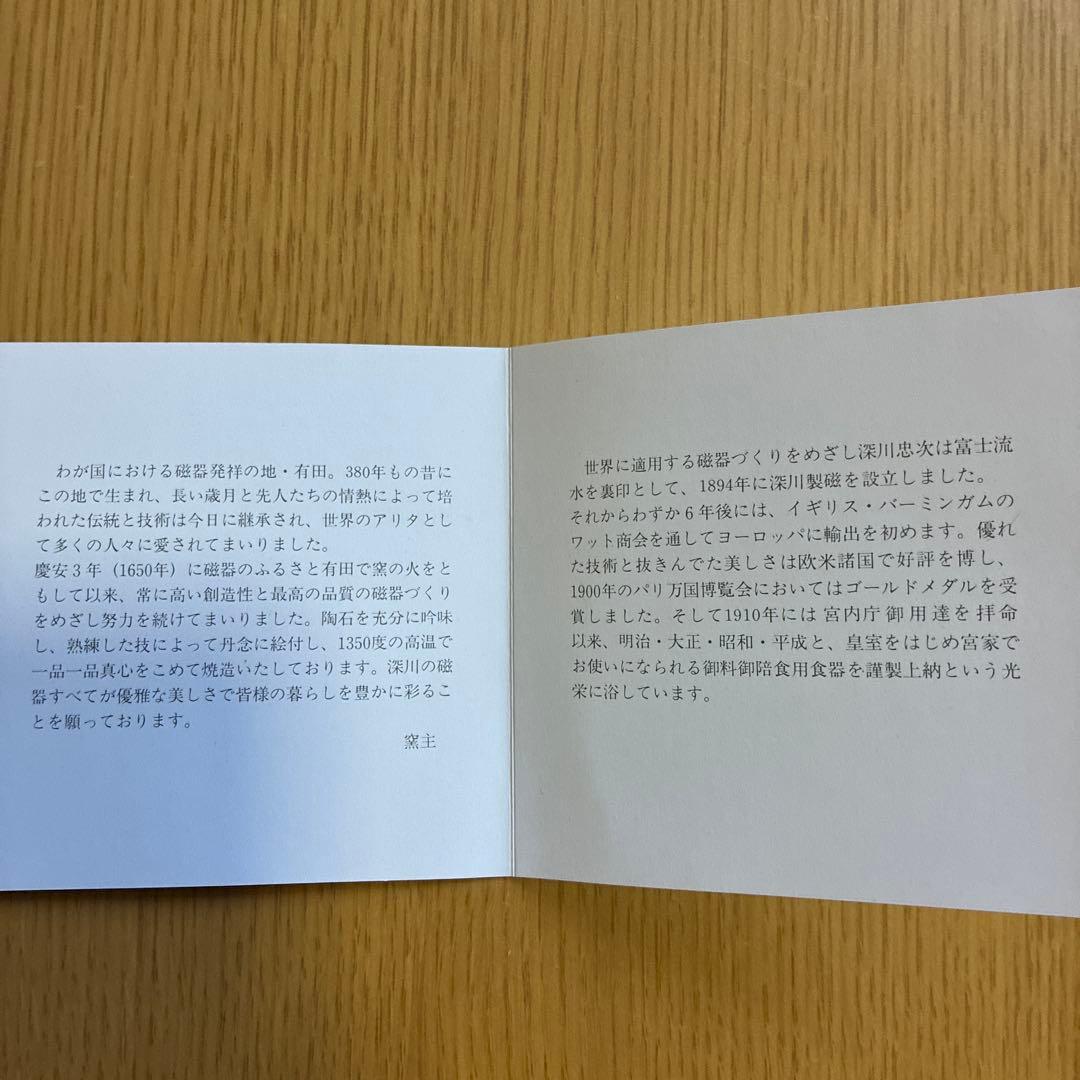 わが国における磁器発祥の地・有田。380年もの昔に
この地で生まれ、長い歳月と先人たちの情熱によって培
われた伝統と技術は今日に継承され、世界のアリタとし
て多くの人々に愛されてまいりました。
慶安3年（1650年）に磁器のふるさと有田で窯の火をと
もして以来、常に高い創造性と最高の品質の磁器づくり
をめざし努力を続けてまいりました。陶石を充分に吟味
し、熟練した技によって丹念に絵付し、1350度の高温で
一品一品真心をこめて焼造いたしております。深川の磁
器すべてが優雅な美しさで皆様の暮らしを豊かに彩るこ
とを願っております。
窯主
世界に適用する磁器づくりをめざし深川忠次は富士流
水を裏印として、1894年に深川製磁を設立しました。
それからわずか6年後には、イギリス・バーミンガムの
ワット商会を通してヨーロッパに輸出を初めます。優れ
た技術と抜きんでた美しさは欧米諸国で好評を博し、
1900年のパリ万国博覧会においてはゴールドメダルを受
賞しました。そして1910年には宮内庁御用達を拝命
以来、明治・大正・昭和・平成と、皇室をはじめ宮家で
お使いになられる御料御陪食用食器を謹製上納という光
栄に浴しています。